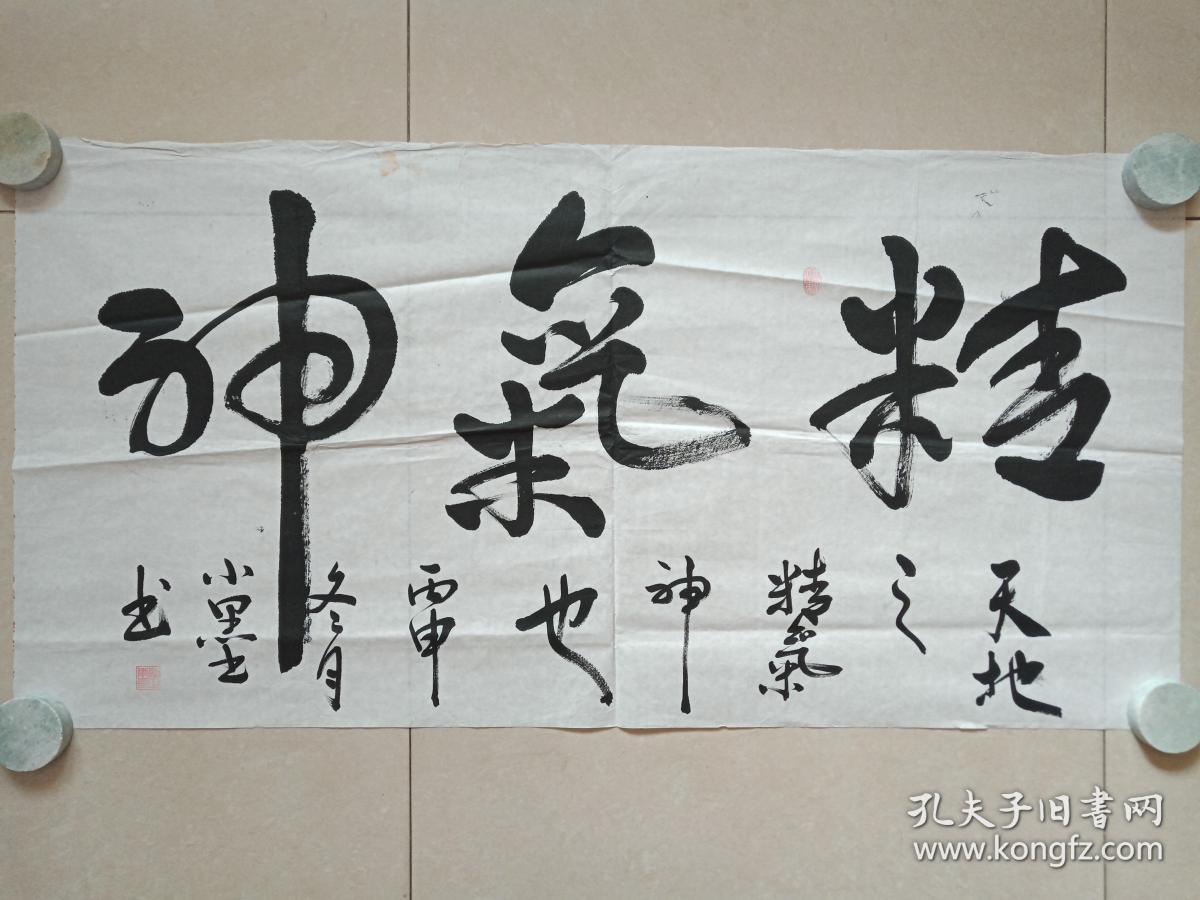 精氣神
天地之精氣神也丙申冬月小墨书
孔夫子旧書网
www.kongfz.com